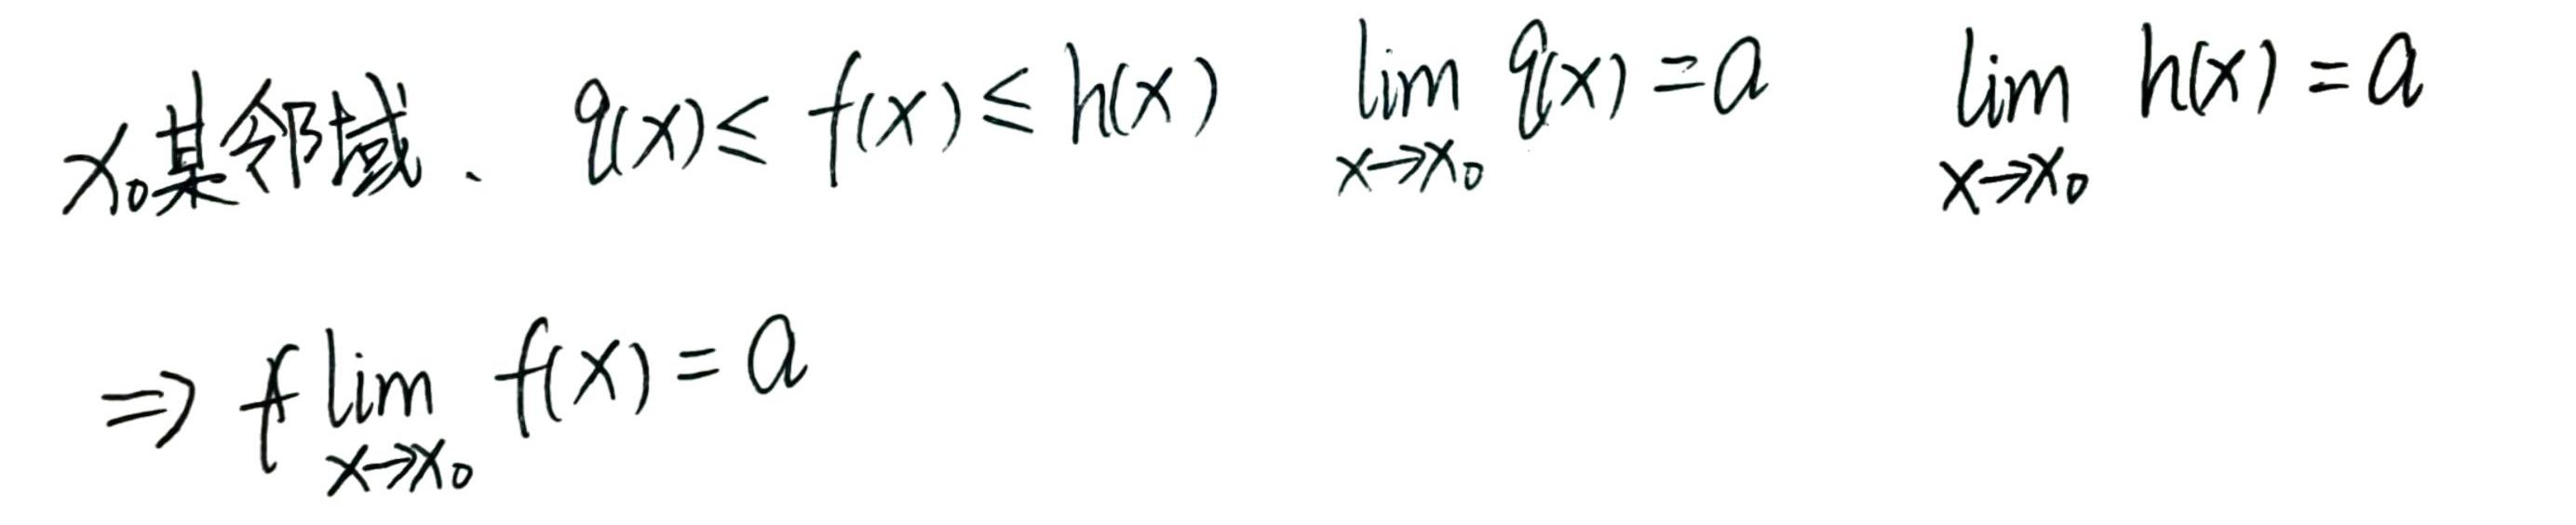 x₀某邻域、 q(x) ≤ f(x) ≤ h(x) lim_{x→x₀} q(x) = a lim_{x→x₀} h(x) = a
⇒ f lim_{x→x₀} f(x) = a